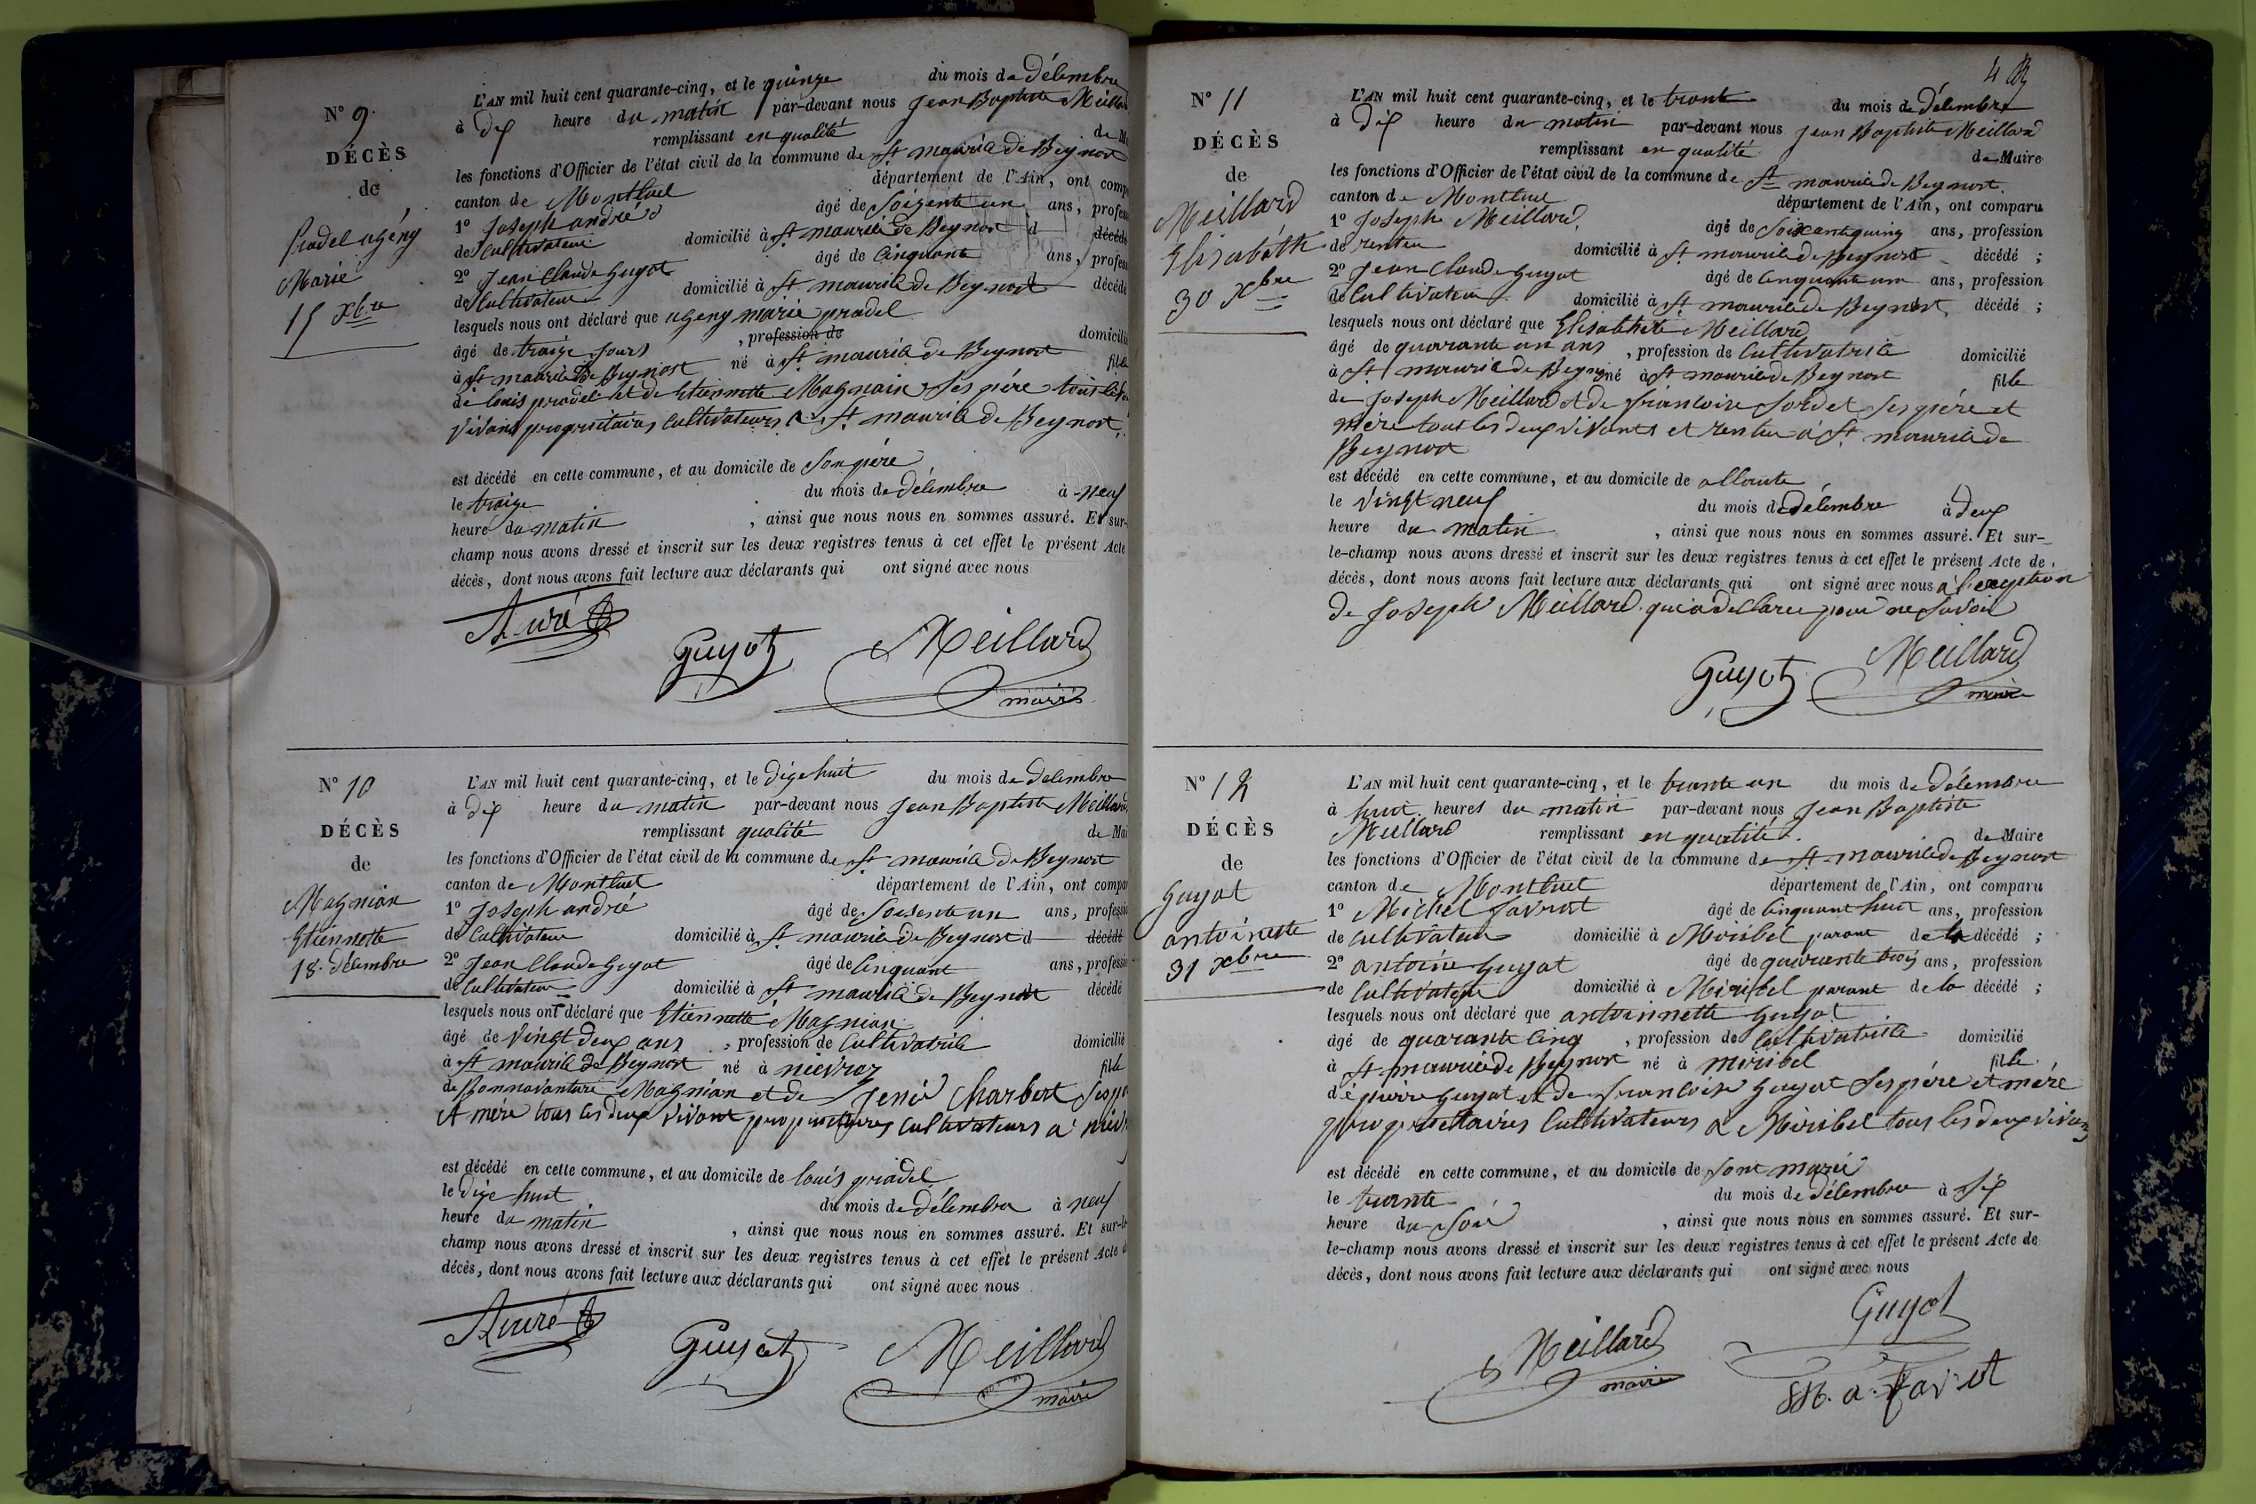 N° 9.
DÉCÈS
de
pradel ugény
Marie
15 xbre
L'AN mil huit cent quarante-cinq, et le quinze du mois de décembre
à dix heure du matin par-devant nous Jean Baptiste Meillard
remplissant en qualité de M
les fonctions d'Officier de l'état civil de la commune de St maurice de Beynost
canton de Montluel département de l'Ain, ont comp
1° Joseph andré âgé de Soixente un ans, profess
de Cultivateur domicilié à St maurice de Beynost d décédé
2° Jean Claude Guyot âgé de Cinquante ans, profess
de Cultivateur domicilié à St maurice de Beynost décédé
lesquels nous ont déclaré que ugeny marie pradel
âgé de traize jours , profession de domicilié
à St maurice de Beynost né à St maurice de Beynost fille
de louis pradel et de Etiennette Magnain Ses père tous les
vivant propriétaires Cultivateurs a St maurice de Beynost
est décédé en cette commune, et au domicile de Son père
le traize du mois de décembre à neuf
heure du matin , ainsi que nous nous en sommes assuré. Et sur-
champ nous avons dressé et inscrit sur les deux registres tenus à cet effet le présent Acte
décès, dont nous avons fait lecture aux déclarants qui ont signé avec nous
Guyot Meillard
maire
N° 10
DÉCÈS
de
Magnian
Etiennette
18. décembre
L'AN mil huit cent quarante-cinq, et le dixe huit du mois de décembre
à dix heure du matin par-devant nous Jean Baptiste Meillard
remplissant qualité de Mai
les fonctions d'Officier de l'état civil de la commune de St maurice de Beynost
canton de Montluel département de l'Ain, ont compa
1° Joseph andré âgé de Soisente un ans, professio
de Cultivateur domicilié à St maurice de Beynost d décédé
2° Jean Claude Guyot âgé de Cinquant ans, professio
de Cultivateur domicilié à St maurice de Beynost décédé
lesquels nous ont déclaré que Etiennette Magnian
âgé de vingt deux ans , profession de Cultivatrice domicilié
à St maurice de Beynost né à nievroz fille
de Bonnavanture Magnian et de Jené Charbert Ses p
et mère tous les deux vivant propriétaires Cultivateurs a niév
est décédé en cette commune, et au domicile de louis pradel
le dixe huit du mois de décembre à neuf
heure du matin , ainsi que nous nous en sommes assuré. Et sur-le
champ nous avons dressé et inscrit sur les deux registres tenus à cet effet le présent Acte d
décès, dont nous avons fait lecture aux déclarants qui ont signé avec nous
Guyot Meillard
maire
4
N° 11
DÉCÈS
de
Meillard
Elisabéth
30 xbre
L'AN mil huit cent quarante-cinq, et le trante du mois de décembre
à dix heure du matin par-devant nous Jean Baptiste Meillard
remplissant en qualité de Maire
les fonctions d'Officier de l'état civil de la commune de St maurice de Beynost.
canton de Montluel département de l'Ain, ont comparu
1° Joseph Meillard, âgé de Soixante quinz ans, profession
de rentier domicilié à St maurice de Beynost décédé ;
2° Jean Claude Guyot âgé de Cinquante un ans, profession
de Cultivateur domicilié à St maurice de Beynost, décédé ;
lesquels nous ont déclaré que Elisabhete Meillard
âgé de quarante un ans , profession de Cultivatrice domicilié
à St maurice de Beyno né à St maurice de Beynost fille
de Joseph Meillard et de francoise Sordet Ses père et
mère tout les deux vivants et rentier a St maurice de
Beynost
est décédé en cette commune, et au domicile de
le vingt neuf du mois de décembre à deux
heure du matin , ainsi que nous nous en sommes assuré. Et sur-
le-champ nous avons dressé et inscrit sur les deux registres tenus à cet effet le présent Acte de
décès, dont nous avons fait lecture aux déclarants qui ont signé avec nous à l'exception
de Joseph Meillard qui a déllaree pour ne Savoir
Guyot Meillard
maire
N° 12
DÉCÈS
de
Guyot
antoinette
31 xbre
L'AN mil huit cent quarante-cinq, et le trante un du mois de décembre
à huit heures du matin par-devant nous Jean Baptiste
Meillard remplissant en qualité de Maire
les fonctions d'Officier de l'état civil de la commune de St maurice de Beynost
canton de Montluel département de l'Ain, ont comparu
1° Michel favrot âgé de Cinquant huit ans, profession
de cultivateur domicilié à Miribel parant de la décédé ;
2° antoine Guyot âgé de quarante trois ans, profession
de Cultivateur domicilié à Miribel parant de la décédé ;
lesquels nous ont déclaré que antoinnette Guyot
âgé de quarante Cinq , profession de Cultivatrice domicilié
à St maurice de Beynost né à miribel fille
dé pierre Guyot et de francoise Guyot Ses père et mére
proprietaires Cultivateurs a Miribel tous les deux vivan
est décédé en cette commune, et au domicile de Sont marie
le trante du mois de décembre à Six
heure du Soir , ainsi que nous nous en sommes assuré. Et sur-
le-champ nous avons dressé et inscrit sur les deux registres tenus à cet effet le présent Acte de
décès, dont nous avons fait lecture aux déclarants qui ont signé avec nous
Guyot
Meillard
maire